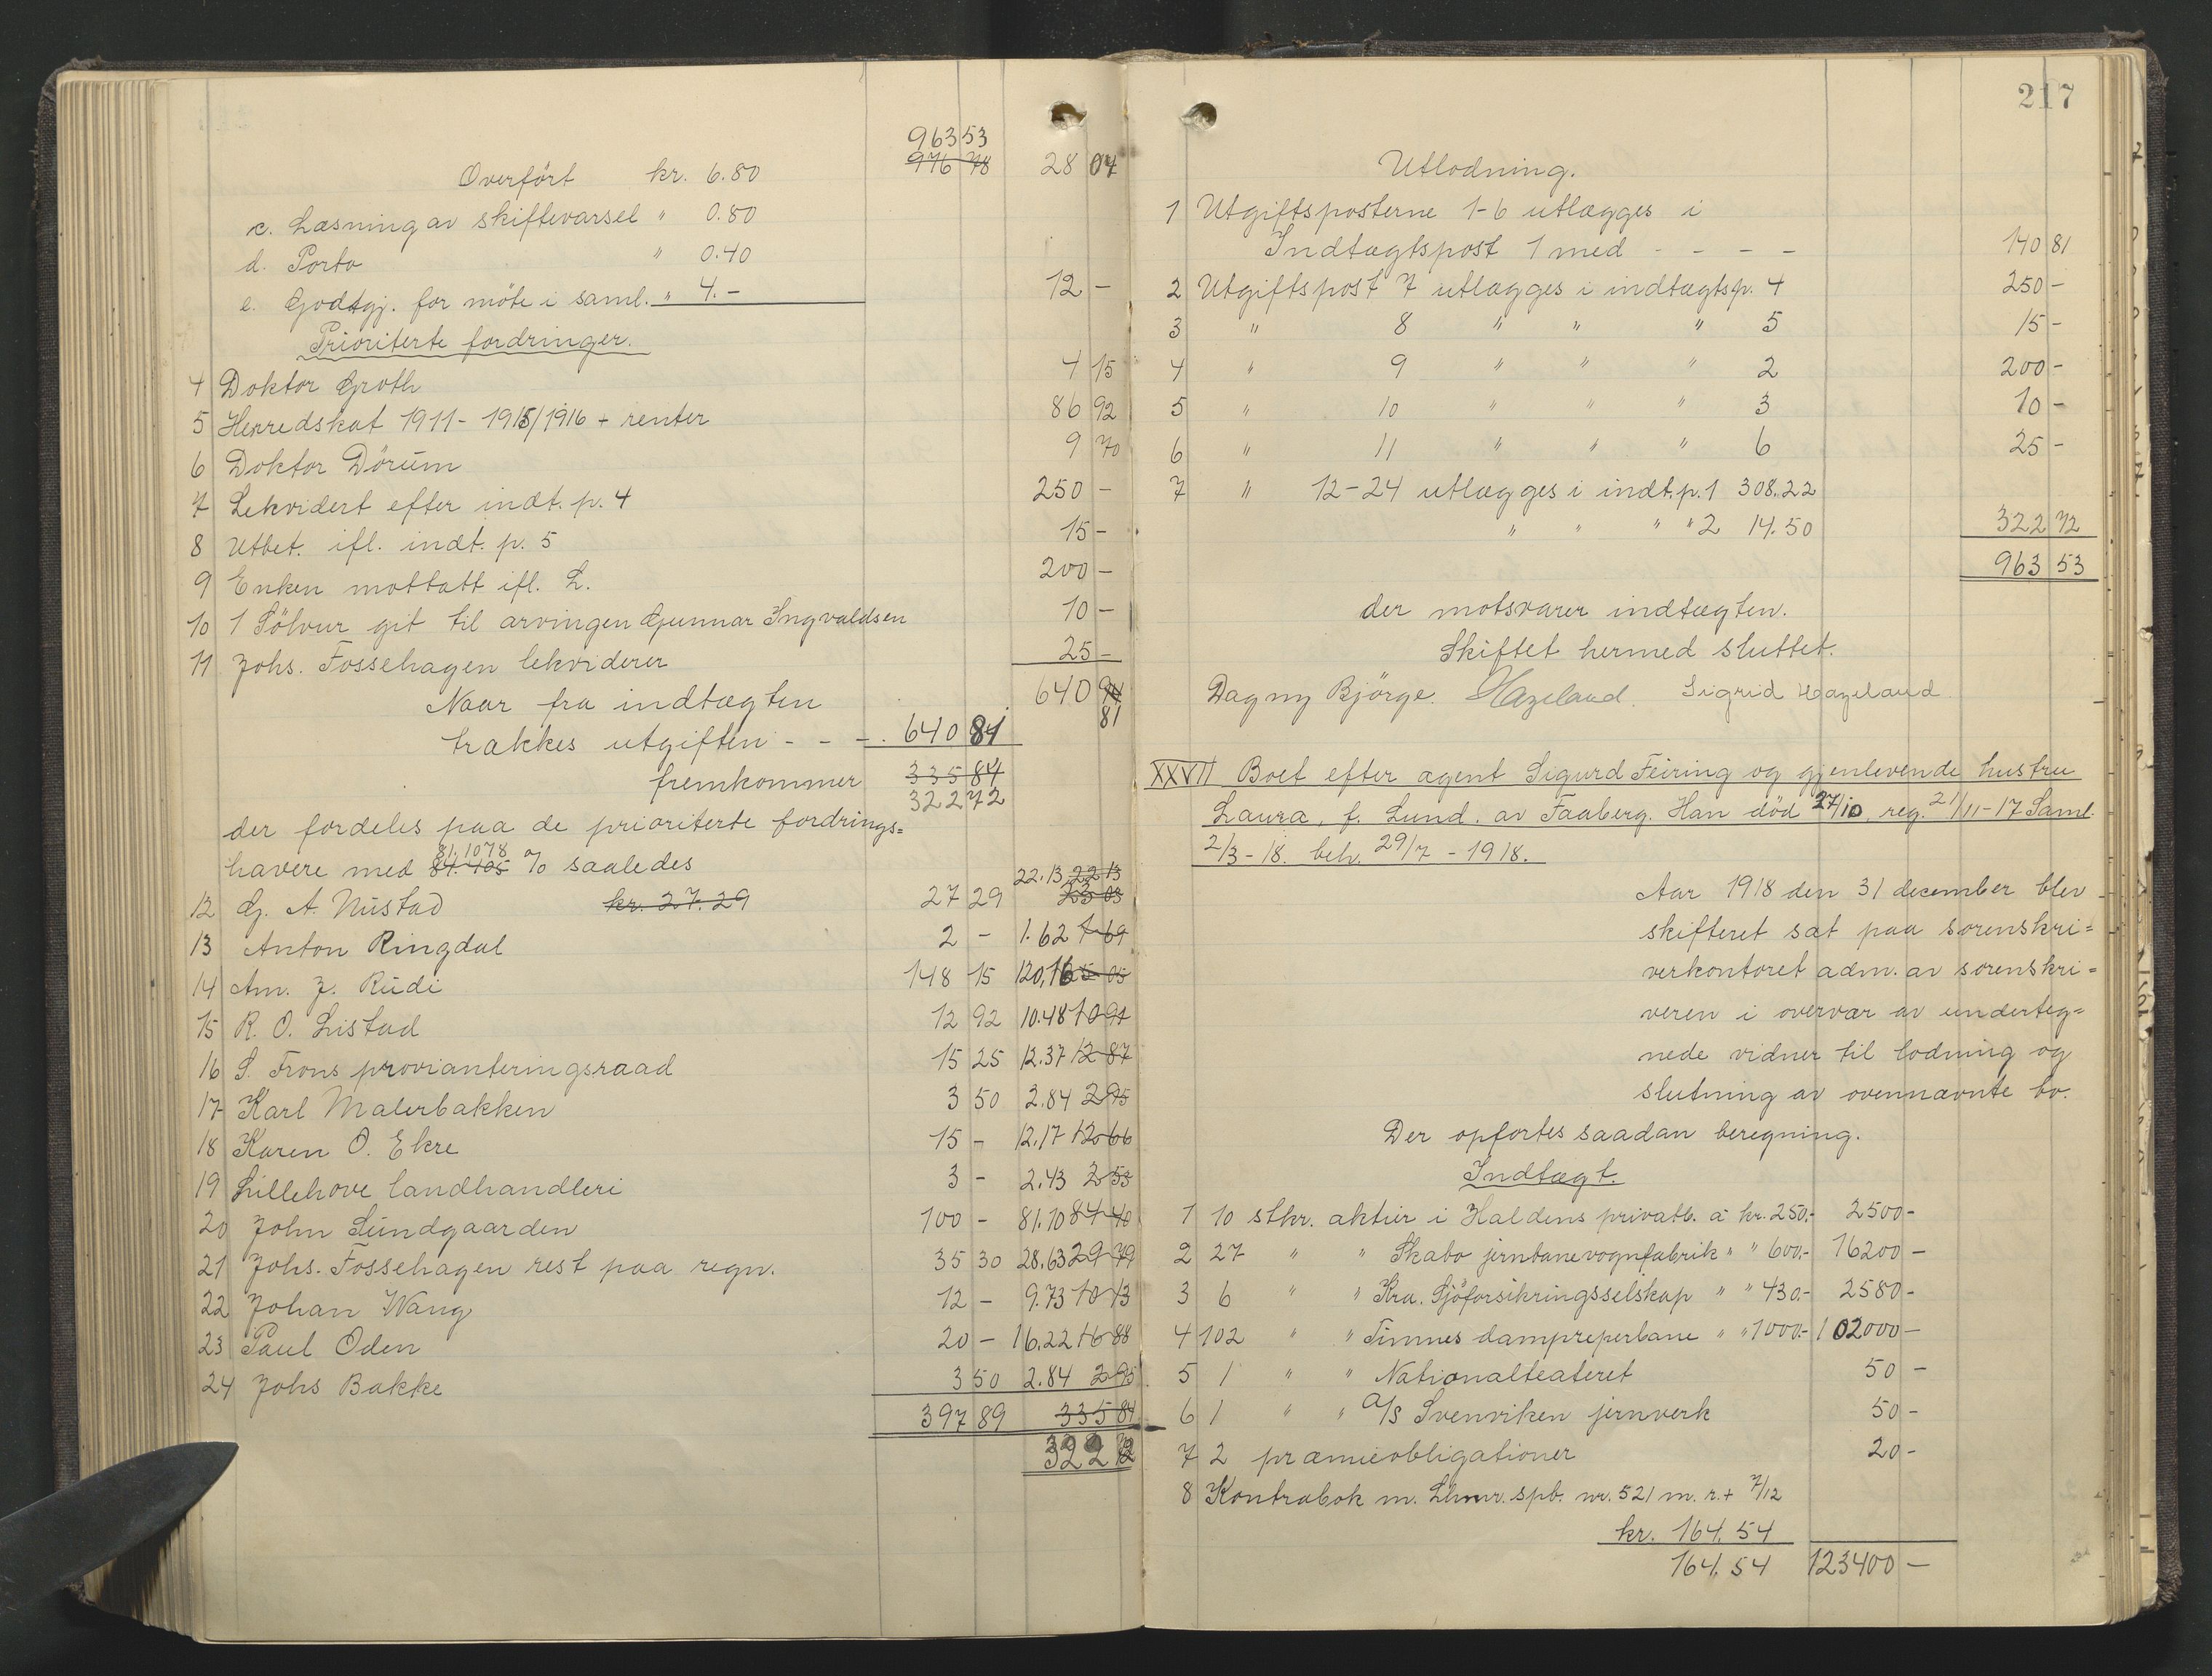 963 53
Overfört kr. 6.80 976 78 28 04
c. Læsning av skiftevarsel " 0.80
d. Porto " 0.40
e. Godtgj. for möte i saml. " 4.- 12 -
Prioriterte fordringer.
4 Doktor Groth 4 15
5 Herredskat 1911-1915/1916 + renter 86 92
6 Doktor Dörum 9 70
7 Lekvidert efter indt. p. 4 250 -
8 Utbet. ifl. indt. p. 5 15 -
9 Enken mottatt ifl. L. 200 -
10 1 Sölvur git til arvingen Gunnar Ingvaldsen 10 -
11 Johs. Fossehagen lekviderer 25 -
Naar fra indtægten 640 94
81
trækkes utgiften - - - 640 81
fremkommer 335 84
322 72
der fordeles paa de prioriterte fordrings=
81.1078
havere med 84.405 % saaledes
12 G. A. Nustad kr. 27.29 27 29 22.13 22 13 23 03
13 Anton Ringdal 2 - 1.62 1 69
14 Am. J. Rudi 148 15 120,16 5 05
15 R. O. Listad 12 92 10.48 10 91
16 S. Frons provianteringsraad 15 25 12.37 12 87
17 Karl Malerbakken 3 50 2.84 2 95
18 Karen O. Ekre 15 - 12.17 12 66
19 Lillehove landhandleri 3 - 2.43 2 53
20 John Sundgaarden 100 - 81.10 84 40
21 Johs. Fossehagen rest paa regn. 35 30 28.63 29 79
22 Johan Wang 12 - 9.73 10 13
23 Paul Oden 20 - 16.22 16 88
24 Johs Bakke 3 50 2.84 2 95
397 89 335 84
322 72
217
Utlodning.
1 Utgiftsposterne 1-6 utlægges i
Indtægtspost 1 med - - - - 140 81
2 Utgiftspost 7 utlægges i indtægtsp. 4 250 -
3 " 8 " " " 5 15 -
4 " 9 " " " 2 200 -
5 " 10 " " " 3 10 -
6 " 11 " " " 6 25 -
7 " 12-24 utlægges i indt. p. 1 308.22
" " " " 2 14.50 322 72
963 53
der motsvarer indtægten.
Skiftet hermed sluttet.
Dagny Björge. Hazeland. Sigrid Hazeland
XXVII Boet efter agent Sigurd Feiring og gjenlevende hustru
Laura, f. Lund. av Faaberg. Han död 27/10. reg. 21/11-17 Saml.
2/3-18. beh. 29/7-1918.
Aar 1918 den 31 december blev
skifteret sat paa sorenskri=
verkontoret adm. av sorenskri=
veren i overvær av underteg=
nede vidner til lodning og
slutning av ovennævnte bo.
Der opförtes saadan beregning.
Indtægt.
1 10 stkr. aktier i Haldens privatb. à kr. 250.- 2500 -
2 27 " " Skabo jernbanevognfabrik " " 600.- 16200 -
3 6 " " Kra. Sjöforsikringsselskap " " 430.- 2580 -
4 102 " " Timnes dampreperbane " " 1000.- 102000 -
5 1 " " Nationalteateret 50 -
6 1 " " A/S Svenviken jernverk 50 -
7 2 præmieobligationer 20 -
8 Kontrabok m. Lhmr. spb. nr. 521 m. r. + 7/12
kr. 164.54
164.54 123400 -